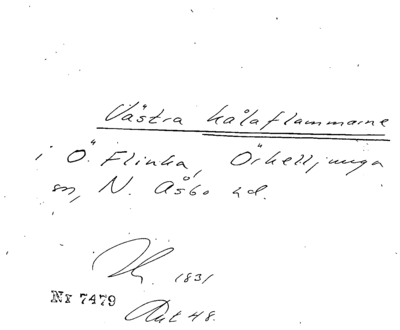 Västra Kålaflammarne
i Ö. Flinka, Örkelljunga
sn, N. Åsbo hd.
1831
Nr 7479
Akt 48.